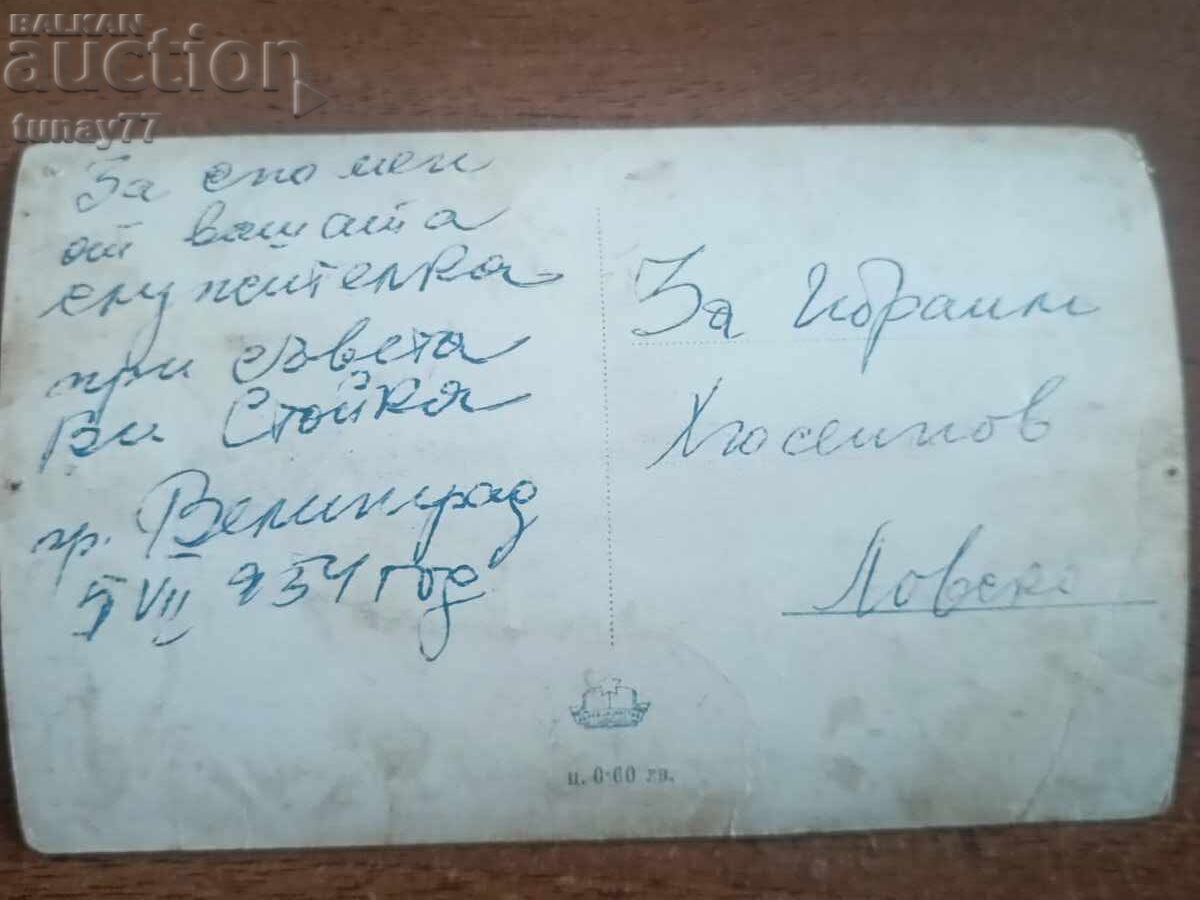 BALKAN
auction
tunay77
За спомен
от вашата
служителка
при съвета
Ви Стойка
гр. Велинград
5 VII 954 год
За Ибраим
Хюсеинов
Ловско
ц. 0·60 лв.